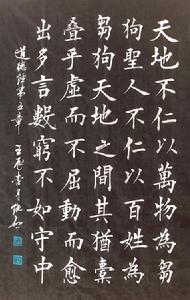 天地不仁以萬物為芻
狗聖人不仁以百姓為
芻狗天地之間其猶橐
叠乎虛而不屈動而愈
出多言數窮不如守中
道德經第五章